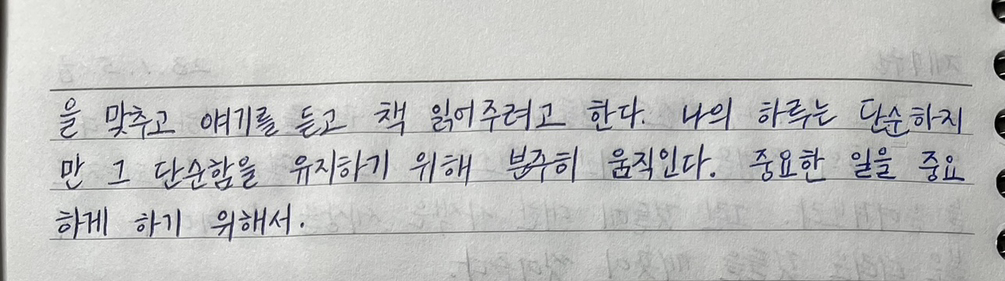 을 맞추고 얘기를 듣고 책 읽어주려고 한다. 나의 하루는 단순하지
만 그 단순함을 유지하기 위해 분주히 움직인다. 중요한 일을 중요
하게 하기 위해서.